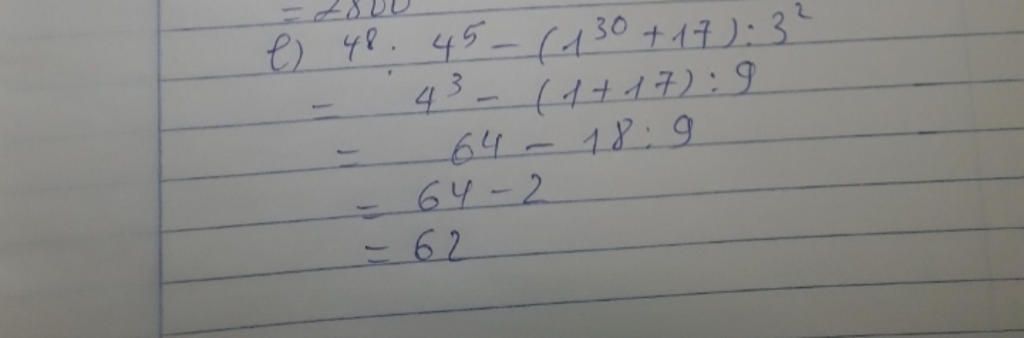 = 2800
e) 4⁸ : 4⁵ - (1³⁰ + 17) : 3²
= 4³ - (1 + 17) : 9
= 64 - 18 : 9
= 64 - 2
= 62